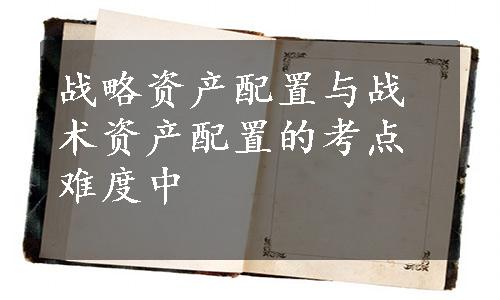 战略资产配置与战
术资产配置的考点
难度中